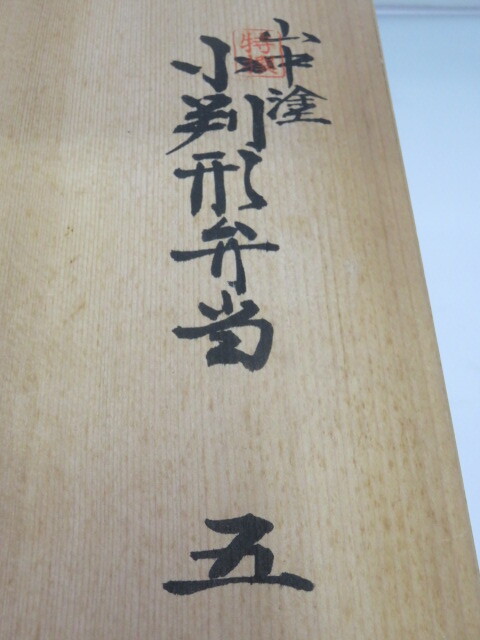 山中塗
特選
小判形弁当
五